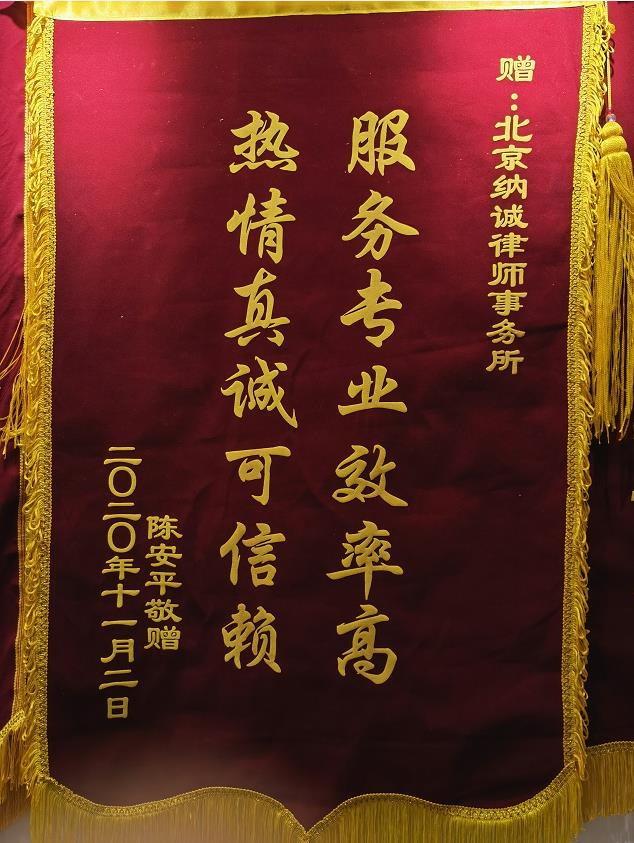 赠：北京纳诚律师事务所
服务专业效率高
热情真诚可信赖
陈安平敬赠
二〇二〇年十一月二日